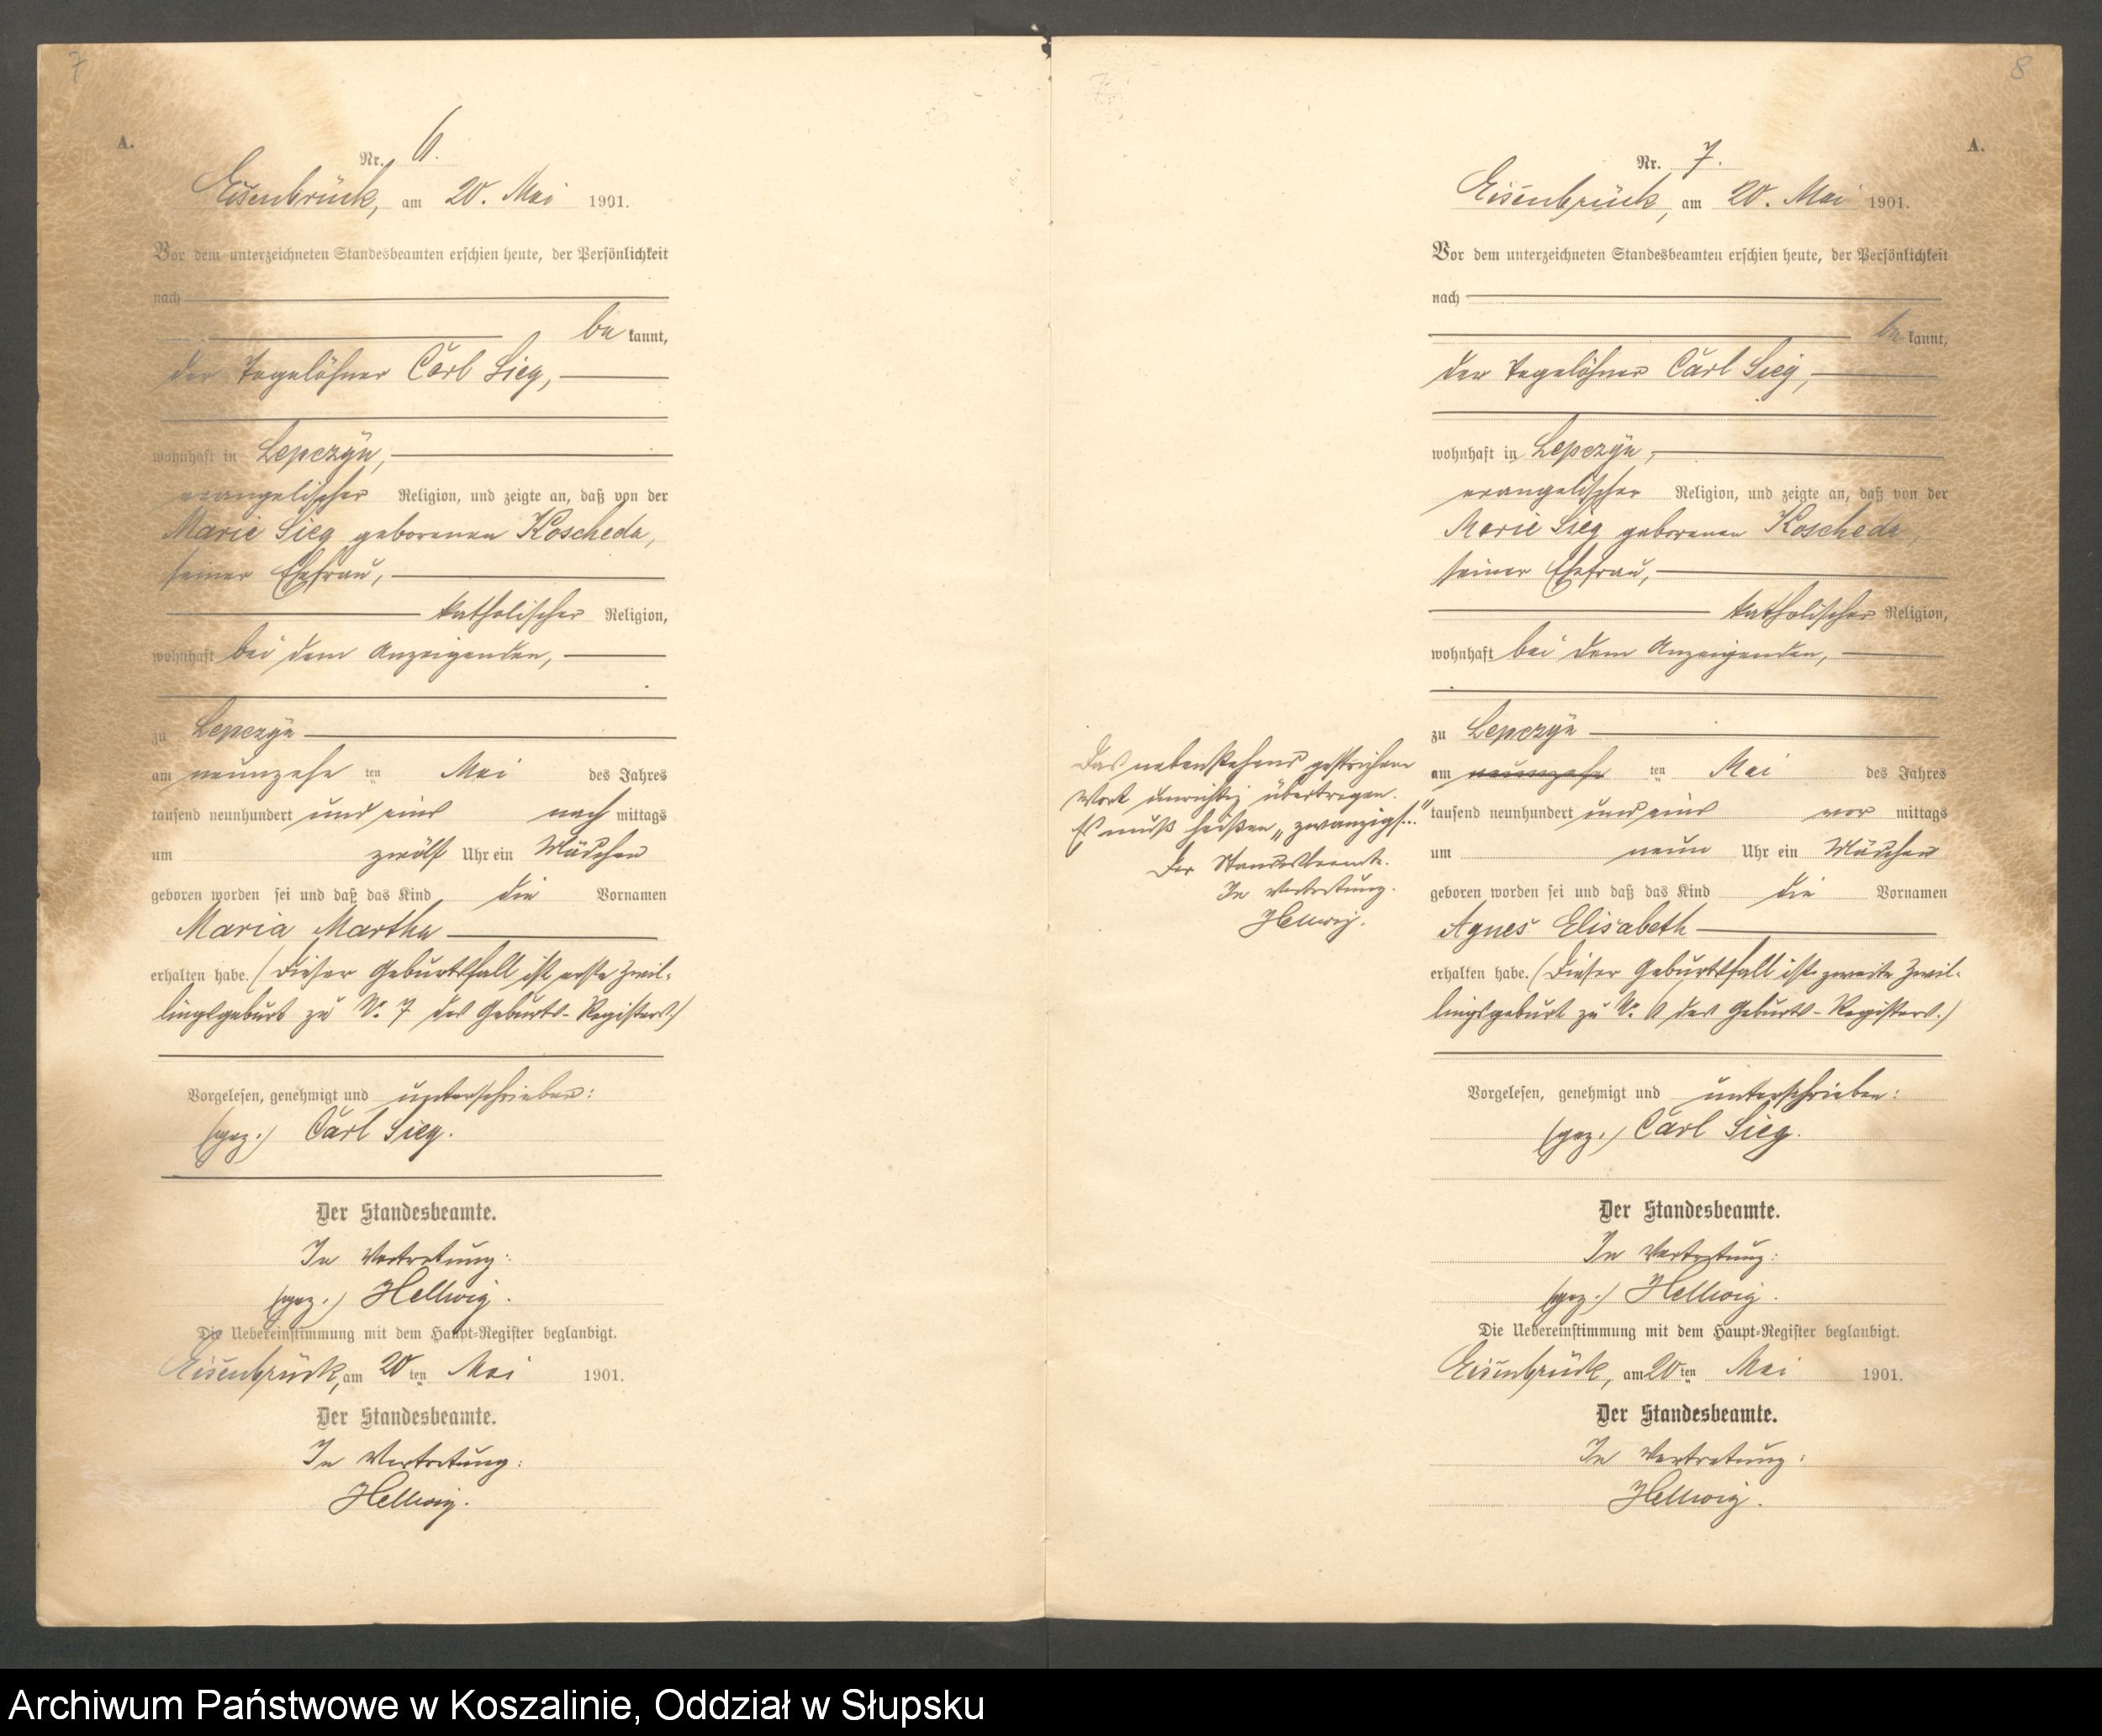 7
A.
Nr. 6.
Eisenbrück, am 20. Mai 1901.
Vor dem unterzeichneten Standesbeamten erschien heute, der Persönlichkeit
nach
be kannt,
der Tagelöhner Carl Sieg,
wohnhaft in Lepczyn,
evangelischer Religion, und zeigte an, daß von der
Marie Sieg geborenen Koscheda,
seiner Ehefrau,
katholischer Religion,
wohnhaft bei dem Anzeigenden,
zu Lepczyn
am neunzehn ten Mai des Jahres
tausend neunhundert und eins nach mittags
um zwölf Uhr ein Mädchen
geboren worden sei und daß das Kind die Vornamen
Maria Martha
erhalten habe. (Dieser Geburtsfall ist erste Zwil-
lingsgeburt zu No. 7 des Geburts-Registers.)
Vorgelesen, genehmigt und unterschrieben:
(gez.) Carl Sieg.
Der Standesbeamte.
In Vertretung:
(gez.) Hellwig.
Die Uebereinstimmung mit dem Haupt-Register beglaubigt.
Eisenbrück, am 20 ten Mai 1901.
Der Standesbeamte.
In Vertretung:
Hellwig.
8
A.
Nr. 7.
Eisenbrück, am 20. Mai 1901.
Vor dem unterzeichneten Standesbeamten erschien heute, der Persönlichkeit
nach
be kannt,
der Tagelöhner Carl Sieg,
wohnhaft in Lepczyn,
evangelischer Religion, und zeigte an, daß von der
Marie Sieg geborenen Koscheda,
seiner Ehefrau,
katholischer Religion,
wohnhaft bei dem Anzeigenden,
zu Lepczyn
am neunzehn ten Mai des Jahres
tausend neunhundert und eins vor mittags
um neun Uhr ein Mädchen
geboren worden sei und daß das Kind die Vornamen
Agnes Elisabeth
erhalten habe. (Dieser Geburtsfall ist zweite Zwil-
lingsgeburt zu No. 6 des Geburts-Registers.)
Vorgelesen, genehmigt und unterschrieben:
(gez.) Carl Sieg.
Der Standesbeamte.
In Vertretung:
(gez.) Hellwig.
Die Uebereinstimmung mit dem Haupt-Register beglaubigt.
Eisenbrück, am 20 ten Mai 1901.
Der Standesbeamte.
In Vertretung:
Hellwig.
Das nebenstehend gestrichene
Wort unrichtig übertragen.
Es muß heißen „zwanzigs..."
Der Standesbeamte.
In Vertretung.
Hellwig.
Archiwum Państwowe w Koszalinie, Oddział w Słupsku